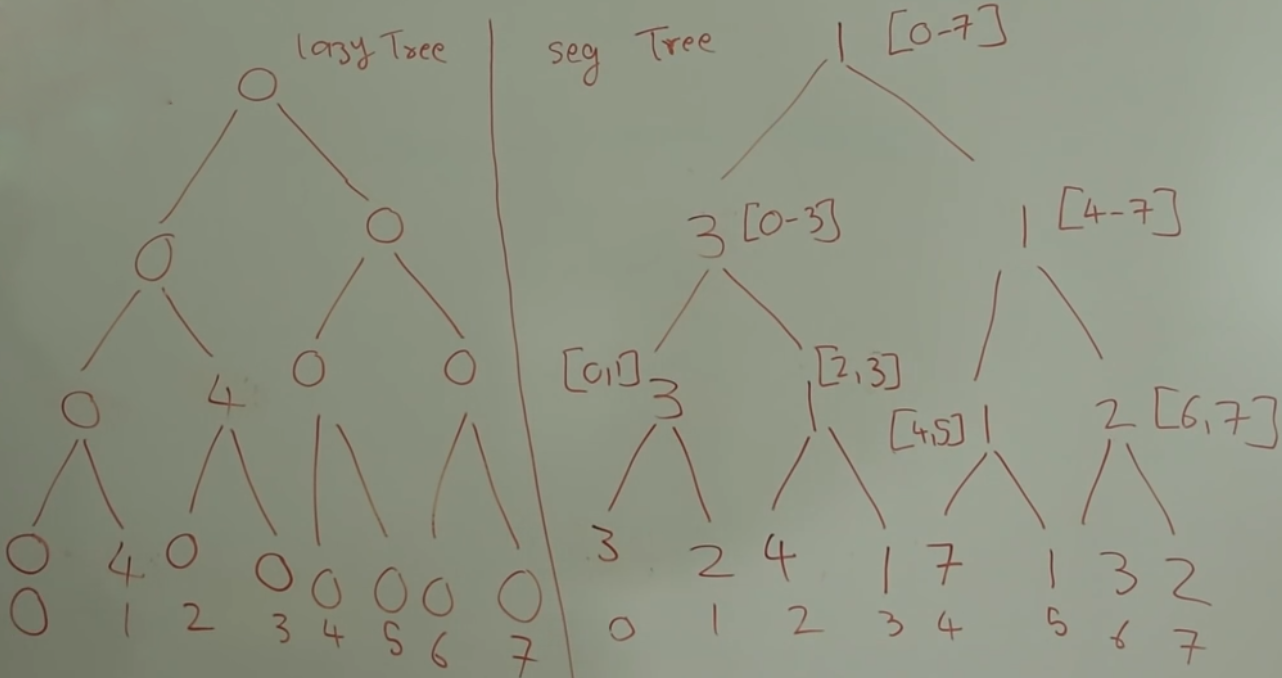 lazy Tree
0
0 0
0 4 0 0
0 4 0 0 0 0 0 0
0 1 2 3 4 5 6 7
seg Tree
1 [0-7]
3 [0-3] 1 [4-7]
[0,1] 3 1 [2,3] [4,5] 1 2 [6,7]
3 2 4 1 7 1 3 2
0 1 2 3 4 5 6 7